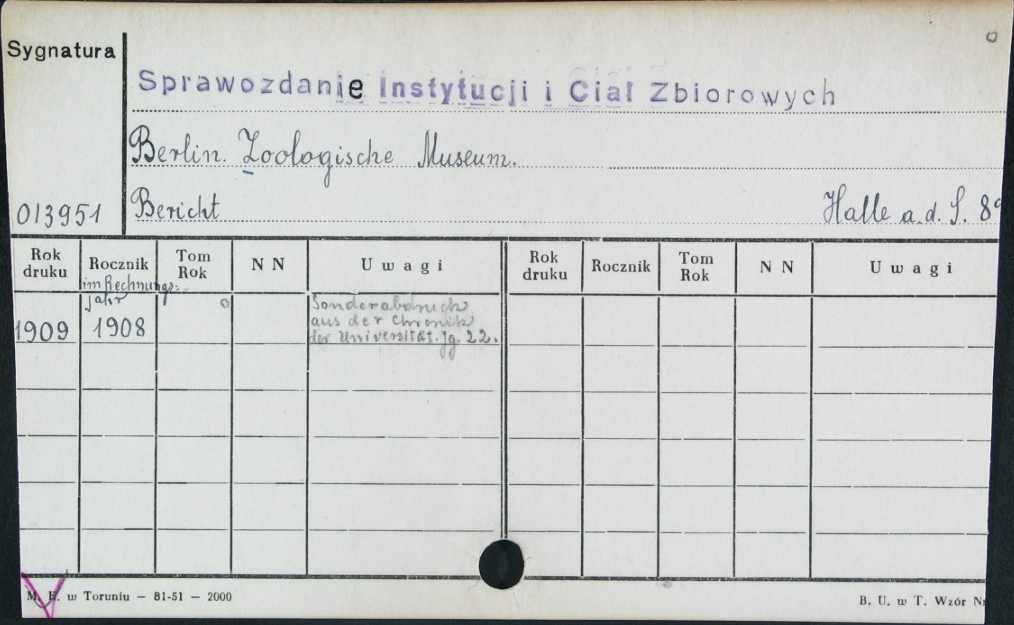 Sygnatura
Sprawozdanie Instytucji i Ciał Zbiorowych
Berlin. Zoologische Museum.
013951 Bericht Halle a.d. S. 8°
Rok druku Rocznik Tom Rok N N Uwagi Rok druku Rocznik Tom Rok N N Uwagi
im Rechnungs-
jahr Sonderabdruck
1909 1908 aus der Chronik
der Universität. Jg. 22.
w Toruniu — 81-51 — 2000 B. U. w T. Wzór